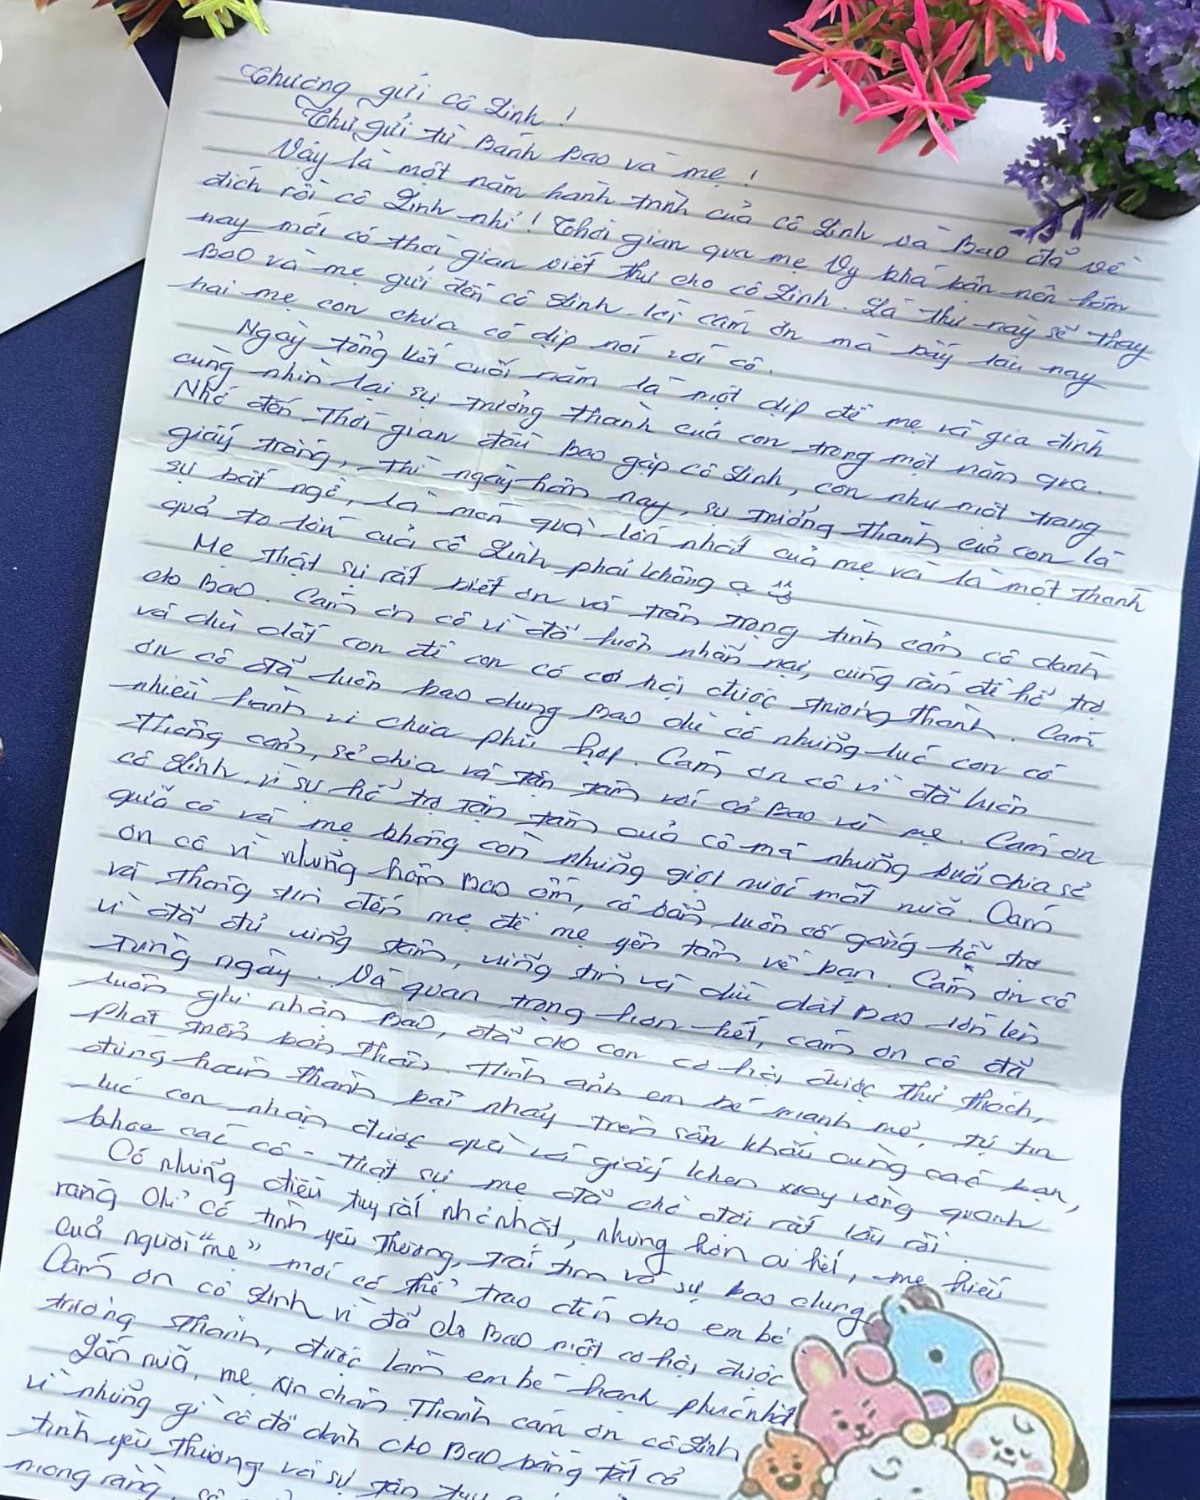 Thương gửi cô Linh !
Thư gửi từ Bánh Bao và mẹ !
Vậy là một năm hành trình của cô Linh và Bao đã về
đích rồi cô Linh nhỉ ! Thời gian qua mẹ Vy khá bận nên hôm
nay mới có thời gian viết thư cho cô Linh. Lá thư này sẽ thay
Bao và mẹ gửi đến cô Linh lời cám ơn mà bấy lâu nay
hai mẹ con chưa có dịp nói với cô.
Ngày tổng kết cuối năm là một dịp để mẹ và gia đình
cùng nhìn lại sự trưởng thành của con trong một năm qua.
Nhớ đến thời gian đầu Bao gặp cô Linh, con như một trang
giấy trắng, thì ngày hôm nay, sự trưởng thành của con là
sự bất ngờ, là món quà lớn nhất của mẹ và là một thành
quả to lớn của cô Linh phải không ạ
Mẹ thật sự rất biết ơn và trân trọng tình cảm cô dành
cho Bao. Cám ơn cô vì đã luôn nhẫn nại, cứng rắn để hỗ trợ
và dìu dắt con để con có cơ hội được trưởng thành. Cám
ơn cô đã luôn bao dung Bao dù có những lúc con có
nhiều hành vi chưa phù hợp. Cám ơn cô vì đã luôn
thông cảm, sẻ chia và tận tâm với cả Bao và mẹ. Cám ơn
cô Linh vì sự hỗ trợ tận tâm của cô mà những buổi chia sẻ
giữa cô và mẹ không còn những giọt nước mắt nữa. Cám
ơn cô vì những hôm Bao ốm, cô bận, luôn cố gắng hỗ trợ
và thông tin đến mẹ để mẹ yên tâm về bạn. Cám ơn cô
vì đã đủ vững tâm, vững tin và dìu dắt Bao lớn lên
từng ngày. Và quan trọng hơn hết, cám ơn cô đã
luôn ghi nhận Bao, đã cho con cơ hội được thử thách,
phát triển bản thân. Hình ảnh em bé mạnh mẽ, tự tin
đứng hoàn thành bài nhảy trên sân khấu cùng các bạn,
lúc con nhận được quà và giấy khen xoay vòng quanh
khoe các cô - thật sự mẹ đã chờ đợi rất lâu rồi
Có những điều tuy rất nhỏ nhặt, nhưng hơn ai hết, mẹ hiểu
rằng chỉ có tình yêu thương, trái tim và sự bao dung
của người "mẹ" mới có thể trao đến cho em bé
Cám ơn cô Linh vì đã cho Bao một cơ hội được
trưởng thành, được làm em bé hạnh phúc nhất
Lần nữa, mẹ xin chân thành cám ơn cô Linh
vì những gì cô đã dành cho Bao bằng tất cả
tình yêu thương và sự tận tụy
mong rằng,